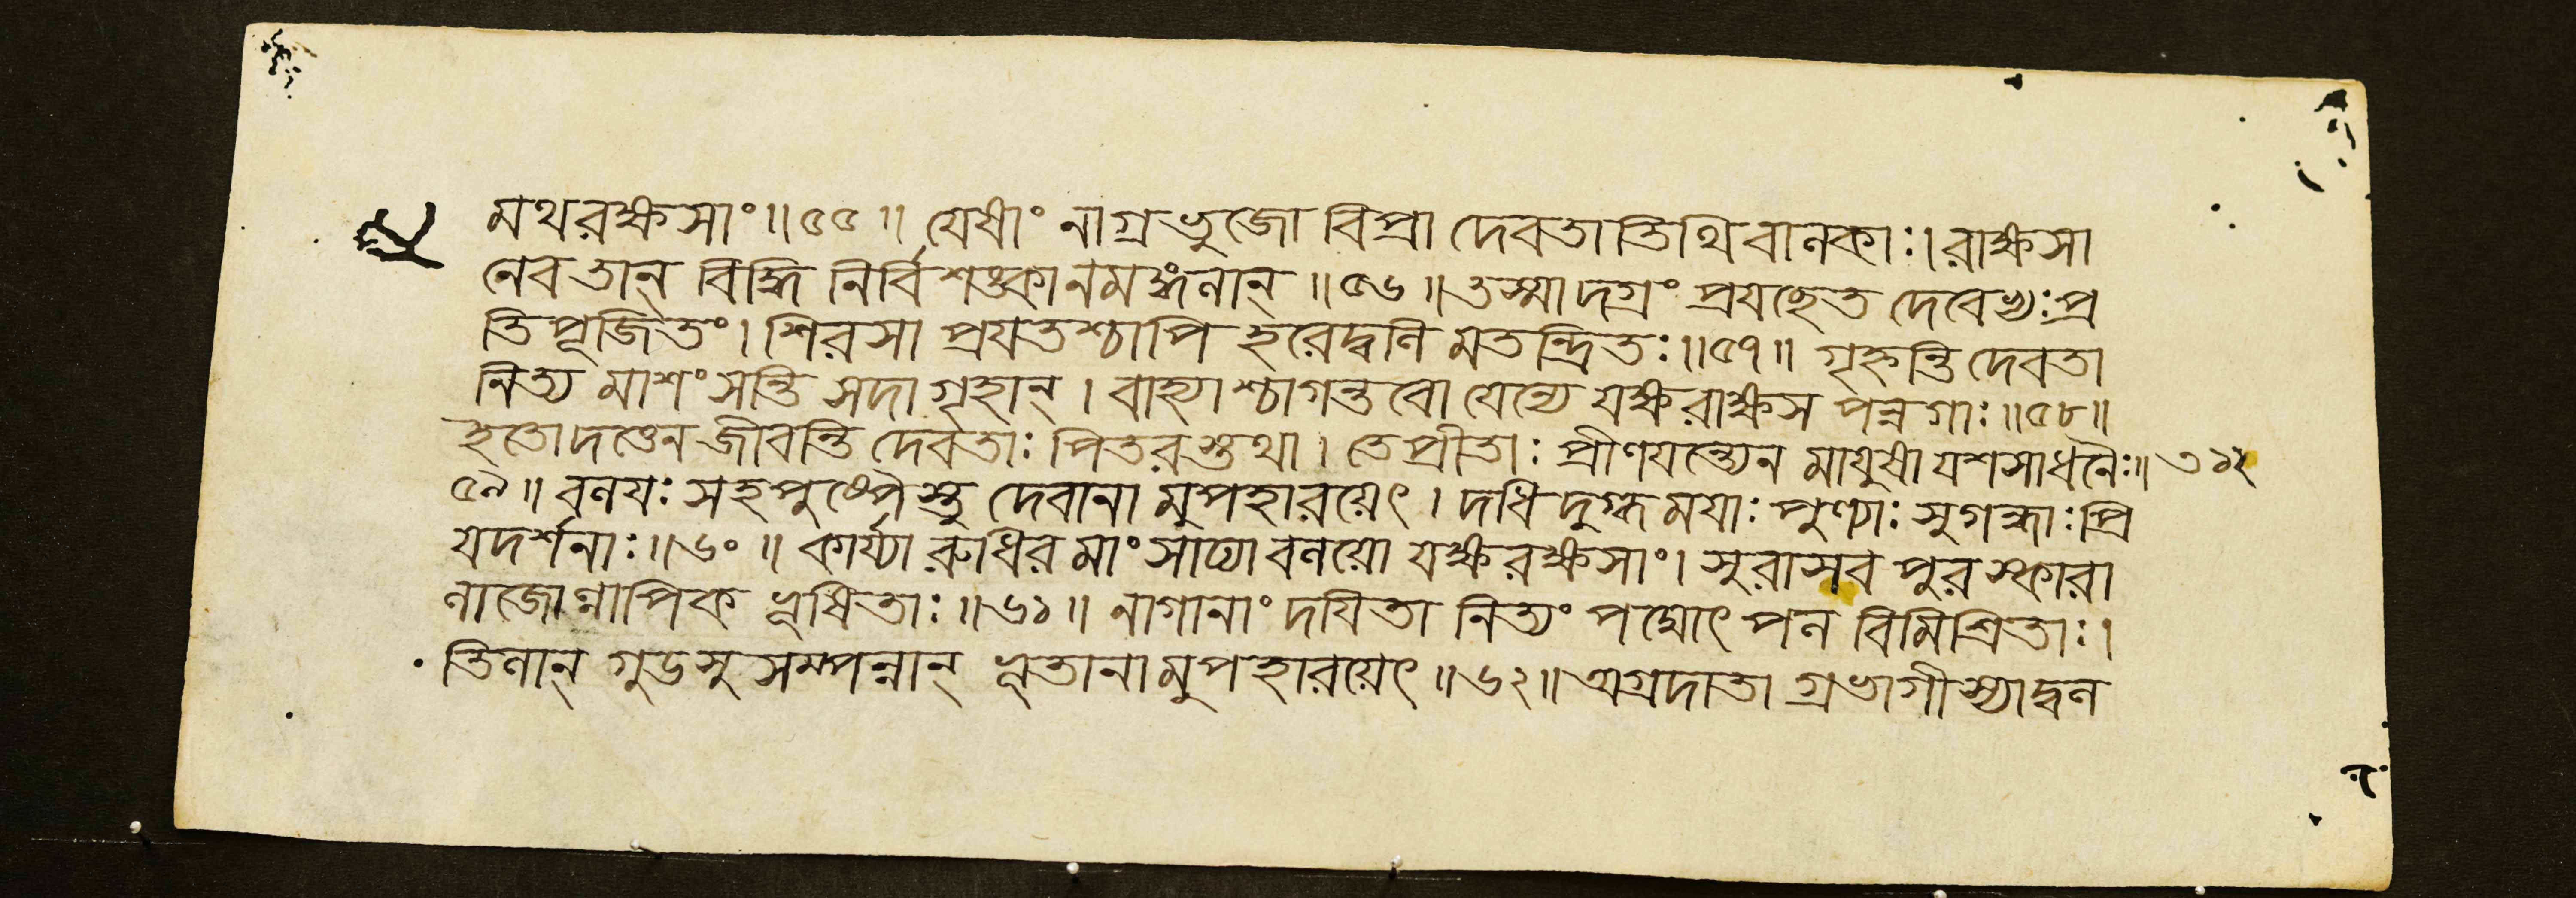 মথরক্ষসাং॥৫৫॥ যেষাং নাগ্রভুজো বিপ্রা দেবতাতিথিবানকাঃ।রাক্ষসা
নেবতান্ বিদ্ধি নির্বিশঙ্কানমঙ্গনান্॥৫৬॥তস্মাদগ্রং প্রযচ্ছেত দেবেভ্যঃপ্র
তিপূজিতং।শিরসা প্রযতশ্চাপি হরেদ্বনি মতন্দ্রিতঃ॥৫৭॥ গৃহ্নন্তি দেবতা
নিত্য মাশংসন্তি সদা গৃহান্। বাহ্যাশ্চাগন্তবো যেন্যে যক্ষরাক্ষস পন্নগাঃ॥৫৮॥
ইতোদত্তেন জীবন্তি দেবতাঃ পিতরস্তথা। তেপ্রীতাঃ প্রীণযন্ত্যেন মাযুষা যশসাধনৈঃ॥ ৩১২
৫৯॥বনযঃ সহপুষ্পৈস্তু দেবানা মুপহারয়েৎ। দধি দুগ্ধমযাঃ পুণ্যাঃ সুগন্ধাঃ প্রি
যদর্শনাঃ॥৬০॥ কার্য্যা রুধির মাংসাঢ্যা বনয়ো যক্ষরক্ষসাং। সুরাসব পুরস্কারা
নাজোন্নাপিক ভূষিতাঃ॥৬১॥ নাগানাং দযিতা নিত্যং পদ্মোৎপন বিমিশ্রিতাঃ।
তিনান্ গুডসু সম্পন্নান্ ভূতানামুপহারয়েৎ॥৬২॥অগ্রদাতা গ্রভাগী স্যাদ্বন